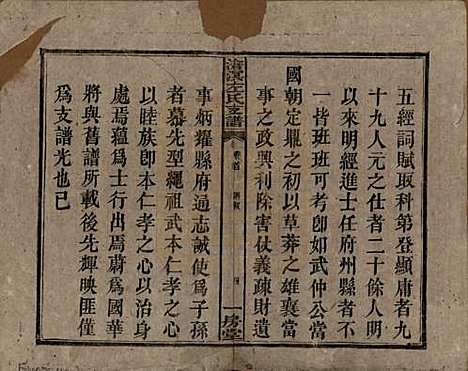 五經詞賦取科第登顯庸者九
十九人元之仕者二十餘人明
以來明經進士任府州縣者不
一皆班班可考卽如武仲公當
國朝定鼎之初以草莽之雄襄當
事之政興利除害仗義疎財遺
王氏支譜
卷首
一房堂
事炳耀縣府通志誠使為子孫
者慕先型繩祖武本仁孝之心
以睦族卽本仁孝之心以治身
處焉蘊為士行出焉蔚為國華
將與舊譜所載後先輝映匪僅
為支譜光也已